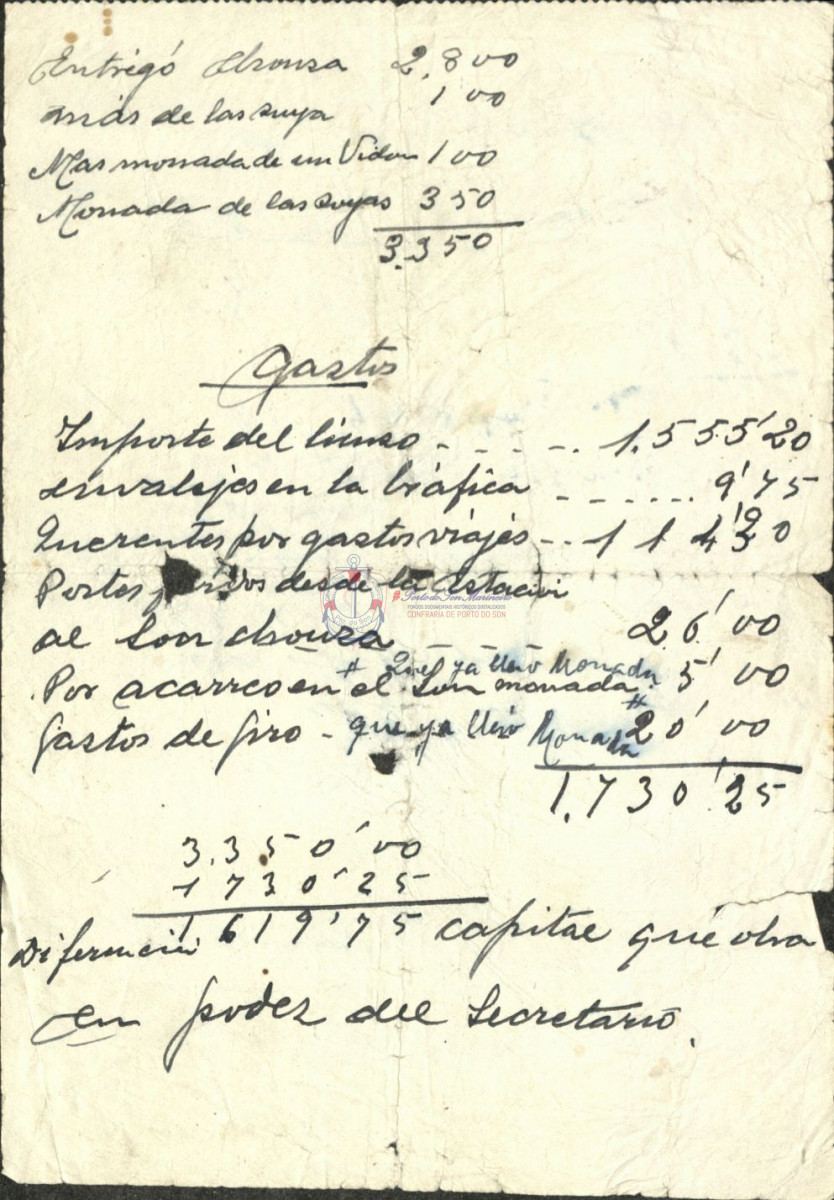 Entregó Chouza 2,800
más de las suya 100
Mas monada de un Vidon 100
Monada de las suyas 350
3.350
Gastos
Importe del lienso - - - - - . 1.555'20
envalajes en la bráfica - - - . . . . 9'75
Increntes por gastos viajes - - . 1 1 4'30
Portes desde la Estación
al Son Chouza 26'00
# Que ya llevó Monada
Por acarreo en el Son monada. 5'00
Gastos de Giro - que ya llevó Monada # 20'00
1.730'25
3.350'00
1730'25
Diferencia 1619'75 capital que obra
en poder del Secretario.
#PortodoSonMarineiro
FONDOS DOCUMENTAIS HISTÓRICOS DIXITALIZADOS
CONFRARÍA DE PORTO DO SON